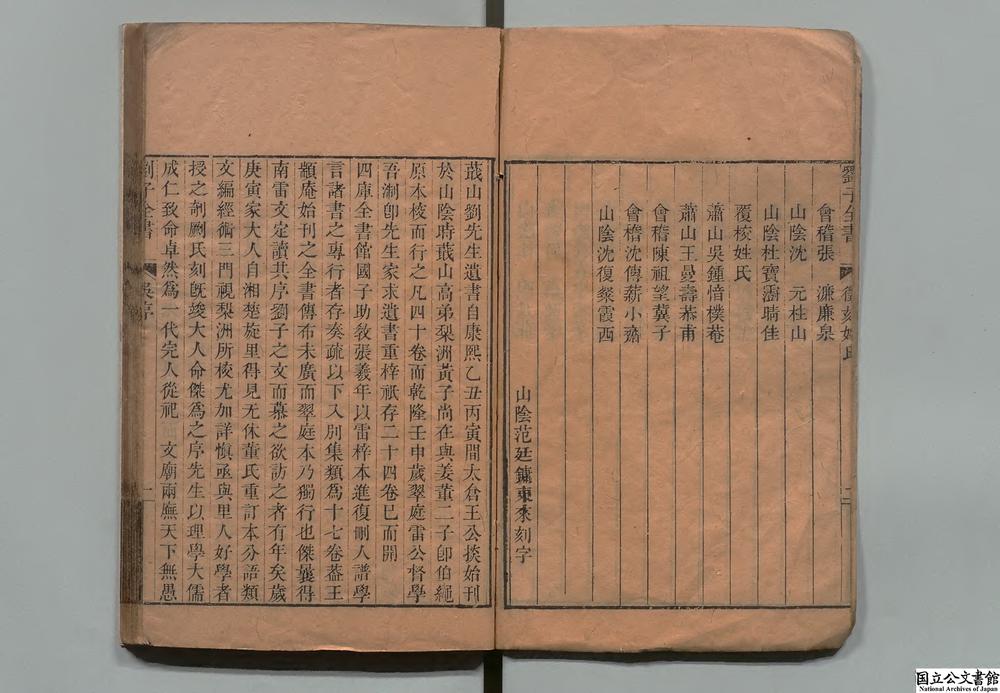 劉子全書 徵刻姓氏 二
會稽張 濂廉泉
山陰沈 元桂山
山陰杜寶澵晴佳
覆校姓氏
蕭山吳鍾愔樸菴
蕭山王曼壽恭甫
會稽陳祖望冀子
會稽沈傳薪小齋
山陰沈復粲霞西
山陰范廷鏞東來刻字
蕺山劉先生遺書自康熙乙丑丙寅間太倉王公掞始刊
於山陰時蕺山高弟梨洲黃子尚在與姜董二子卽伯繩
原本校而行之凡四十卷而乾隆壬申歲翠庭雷公督學
吾浙卽先生家求遺書重梓祇存二十四卷已而開
四庫全書館國子助敎張羲年以雷梓本進復刪人譜學
言諸書之專行者存奏疏以下入別集類爲十七卷葢王
顓庵始刊之全書傳布未廣而翠庭本乃獨行也傑曩得
南雷文定讀其序劉子之文而慕之欲訪之者有年矣歲
庚寅家大人自湘楚旋里得見无休董氏重訂本分語類
文編經術三門視梨洲所校尤加詳愼亟與里人好學者
授之剞劂氏刻旣竣大人命傑爲之序先生以理學大儒
成仁致命卓然爲一代完人從祀 文廟兩廡天下無愚
劉子全書 吳序 一
国立公文書館
National Archives of Japan